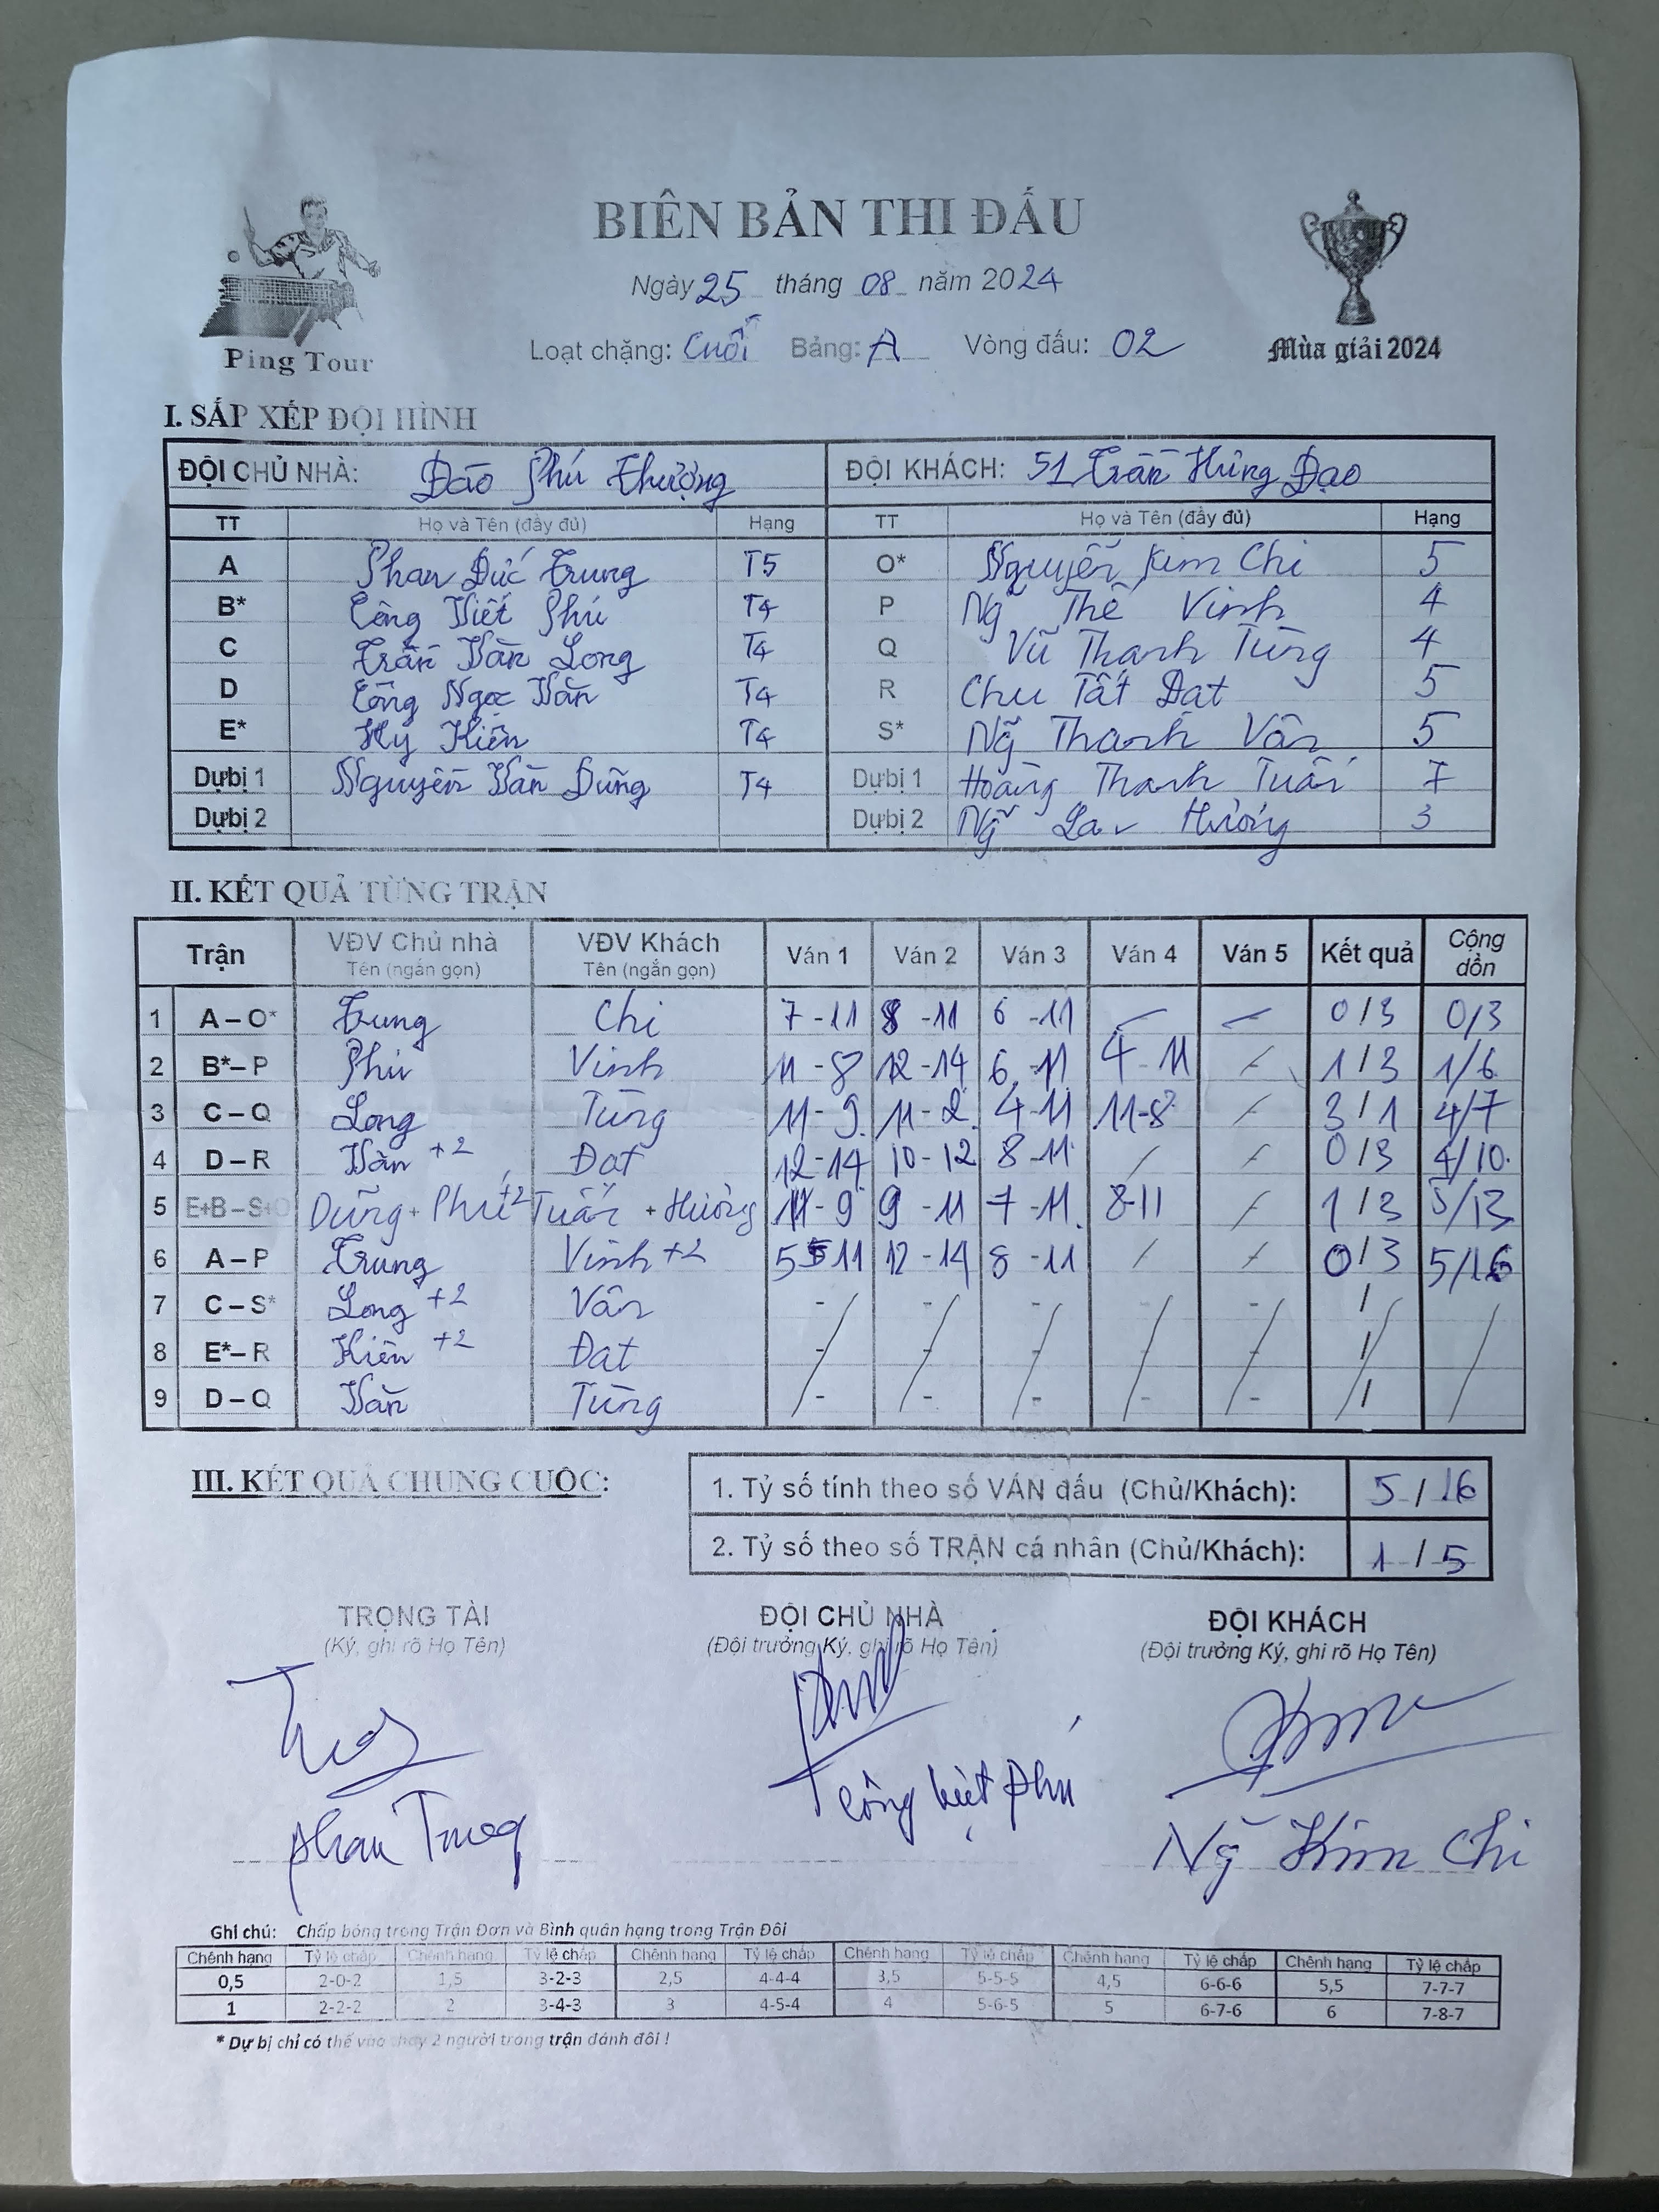 BIÊN BẢN THI ĐẤU
Ngày 25 tháng 08 năm 2024
Loạt chặng: Cuối Bảng: A Vòng đấu: 02
Ping Tour
Mùa giải 2024
I. SẮP XẾP ĐỘI HÌNH
ĐỘI CHỦ NHÀ: Đào Phú Thượng ĐỘI KHÁCH: 51 Trần Hưng Đạo
TT Họ và Tên (đầy đủ) Hạng TT Họ và Tên (đầy đủ) Hạng
A Phan Đức Trung T5 O* Nguyễn Kim Chi 5
B* Công Viết Phú T4 P Ng Thế Vinh 4
C Trần Văn Long T4 Q Vũ Thanh Tùng 4
D Công Ngọc Văn T4 R Chu Tất Đạt 5
E* Hy Kiên T4 S* Ng Thanh Vân 5
Dự bị 1 Nguyễn Văn Dũng T4 Dự bị 1 Hoàng Thanh Tuấn 7
Dự bị 2 Dự bị 2 Ng Lan Hương 3
II. KẾT QUẢ TỪNG TRẬN
Trận VĐV Chủ nhà Tên (ngắn gọn) VĐV Khách Tên (ngắn gọn) Ván 1 Ván 2 Ván 3 Ván 4 Ván 5 Kết quả Cộng dồn
1 A – O* Trung Chi 7 - 11 8 - 11 6 - 11 0 / 3 0/3
2 B* – P Phú Vinh 11 - 8 12 - 14 6 - 11 4 - 11 1 / 3 1/6
3 C – Q Long Tùng 11 - 9 11 - 2 4 - 11 11 - 8 3 / 1 4/7
4 D – R Văn +2 Đạt 12 - 14 10 - 12 8 - 11 0 / 3 4/10
5 E+B – S+O Dũng + Phú +2 Tuấn + Hương 11 - 9 9 - 11 7 - 11 8-11 1 / 3 5/13
6 A – P Trung Vinh +2 5 - 11 12 - 14 8 - 11 0 / 3 5/16
7 C – S* Long +2 Vân - - - - - /
8 E* – R Kiên +2 Đạt - - - - - /
9 D – Q Văn Tùng - - - - - /
III. KẾT QUẢ CHUNG CUỘC:
1. Tỷ số tính theo số VÁN đấu (Chủ/Khách): 5 / 16
2. Tỷ số theo số TRẬN cá nhân (Chủ/Khách): 1 / 5
TRỌNG TÀI ĐỘI CHỦ NHÀ ĐỘI KHÁCH
(Ký, ghi rõ Họ Tên) (Đội trưởng Ký, ghi rõ Họ Tên) (Đội trưởng Ký, ghi rõ Họ Tên)
Phan Trung Công Viết Phú Ng Kim Chi
Ghi chú: Chấp bóng trong Trận Đơn và Bình quân hạng trong Trận Đôi
Chênh hạng Tỷ lệ chấp Chênh hạng Tỷ lệ chấp Chênh hạng Tỷ lệ chấp Chênh hạng Tỷ lệ chấp Chênh hạng Tỷ lệ chấp Chênh hạng Tỷ lệ chấp
0,5 2-0-2 1,5 3-2-3 2,5 4-4-4 3,5 5-5-5 4,5 6-6-6 5,5 7-7-7
1 2-2-2 2 3-4-3 3 4-5-4 4 5-6-5 5 6-7-6 6 7-8-7
* Dự bị chỉ có thể vào thay 2 người trong trận đánh đôi !